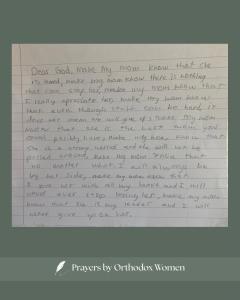 Dear God, make my mom know that she
is loved, make my mom know there is nothing
that can stop her, make my mom know that
I really apreciate her, make my mom know
that even though stuff can be hard it
does not mean we will give up make my mom
know that she is the best mom you
could possibly have, make my mom know that
she is a strong and she will not be
make my mom know that
no matter what I will always be
by her side, make my mom know that
I love her with all my heart and I will
never ever stop loving her, make my mom
know that she is my and I will
never give up on her.
Prayers by Orthodox Women